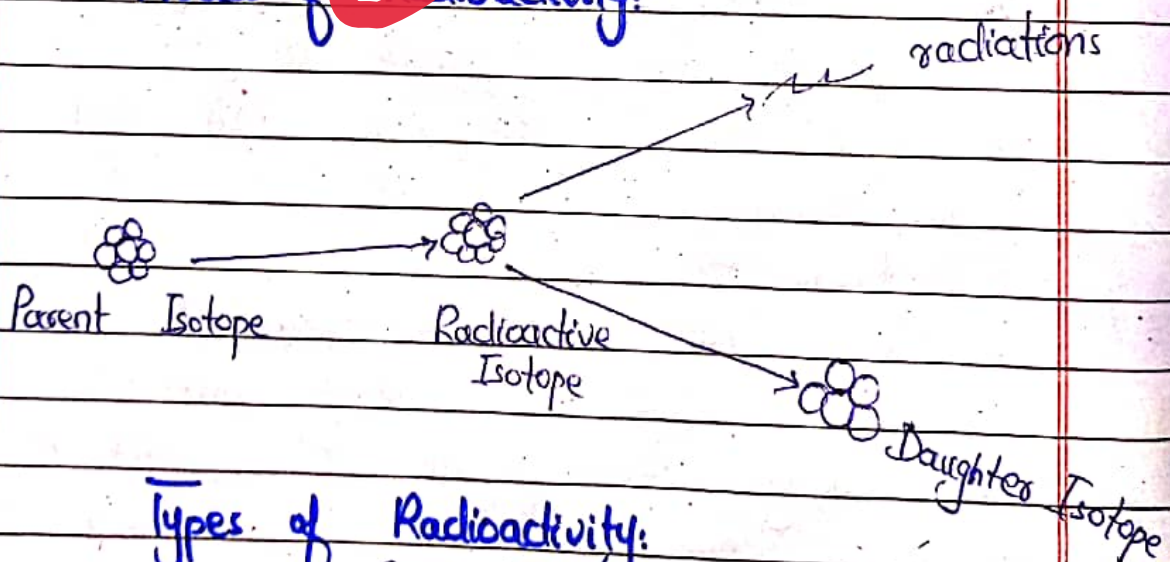 of
radiations
Parent Isotope
Radioactive
Isotope
Daughter Isotope
Types of Radioactivity: